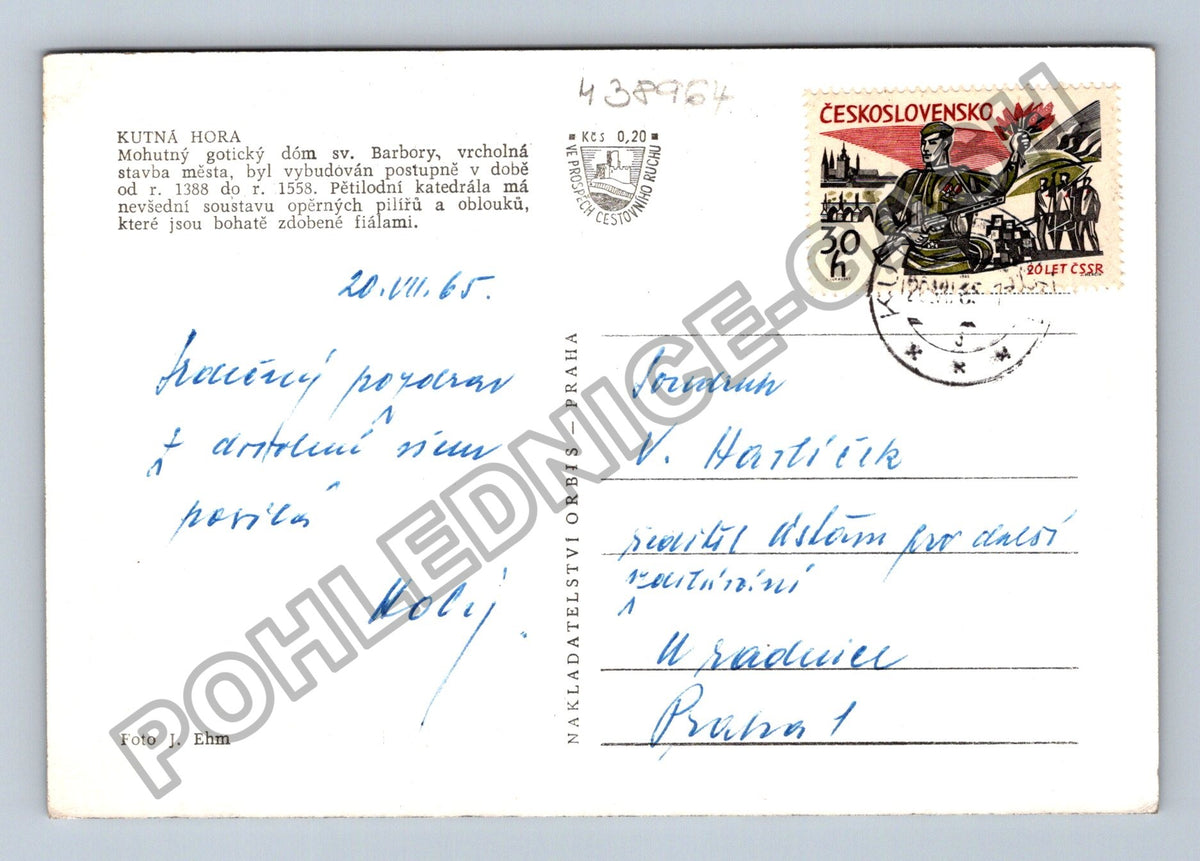 438964
KUTNÁ HORA
Mohutný gotický dóm sv. Barbory, vrcholná
stavba města, byl vybudován postupně v době
od r. 1388 do r. 1558. Pětilodní katedrála má
nevšední soustavu opěrných pilířů a oblouků,
které jsou bohatě zdobené fiálami.
Kčs 0,20
VE PROSPĚCH CESTOVNÍHO RUCHU
ČESKOSLOVENSKO
30 h
20 LET ČSSR
20.VII.65.
Srdečný pozdrav
z dovolené všem
posílá
Holý
Foto J. Ehm
NAKLADATELSTVÍ ORBIS — PRAHA
Soudruh
V. Havlíček
ředitel Ústavu pro další
U radnice
Praha 1
POHLEDNICE-CZECH